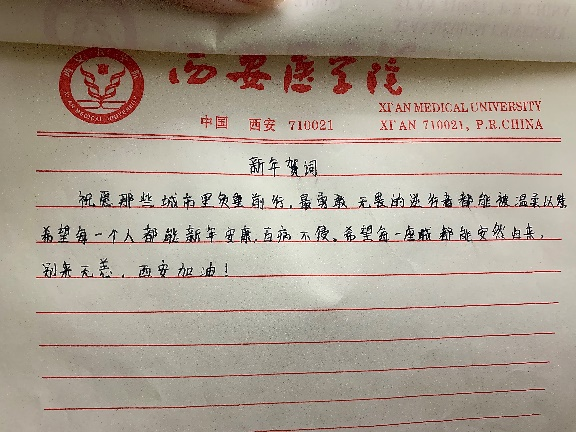 西安医学院
XI'AN MEDICAL UNIVERSITY
中国 西安 710021
XI'AN 710021, P.R.CHINA
新年贺词
祝愿那些城市里负重前行,最勇敢无畏的逆行者都能被温柔以待
希望每一个人都能新年安康,百病不侵。希望每一座城都能安然归来,
别来无恙,西安加油!